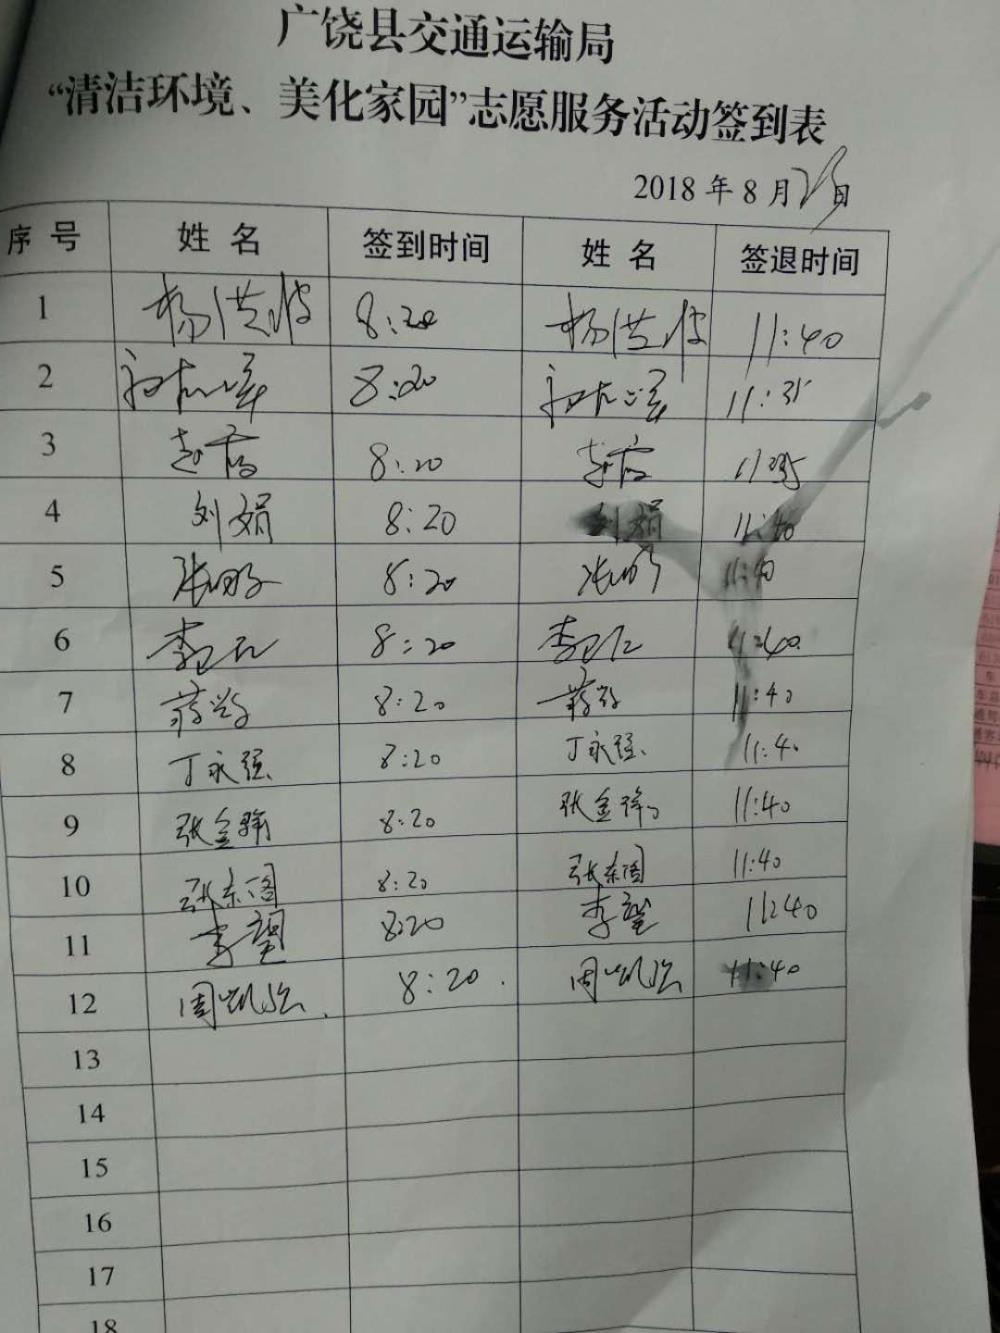 广饶县交通运输局
“清洁环境、美化家园”志愿服务活动签到表
2018 年 8 月 25 日
序 号 姓 名 签到时间 姓 名 签退时间
1 杨洪波 8:20 杨洪波 11:40
2 8:20 11:35
3 8:20 11:35
4 刘娟 8:20 刘娟 11:40
5 8:20 11:40
6 李卫仁 8:20 李卫仁 11:40
7 8:20 11:40
8 丁永强 8:20 丁永强 11:40
9 张金锋 8:20 张金锋 11:40
10 张东阁 8:20 张东阁 11:40
11 李望 8:20 李望 11:40
12 周凯 8:20 周凯 11:40
13
14
15
16
17
18